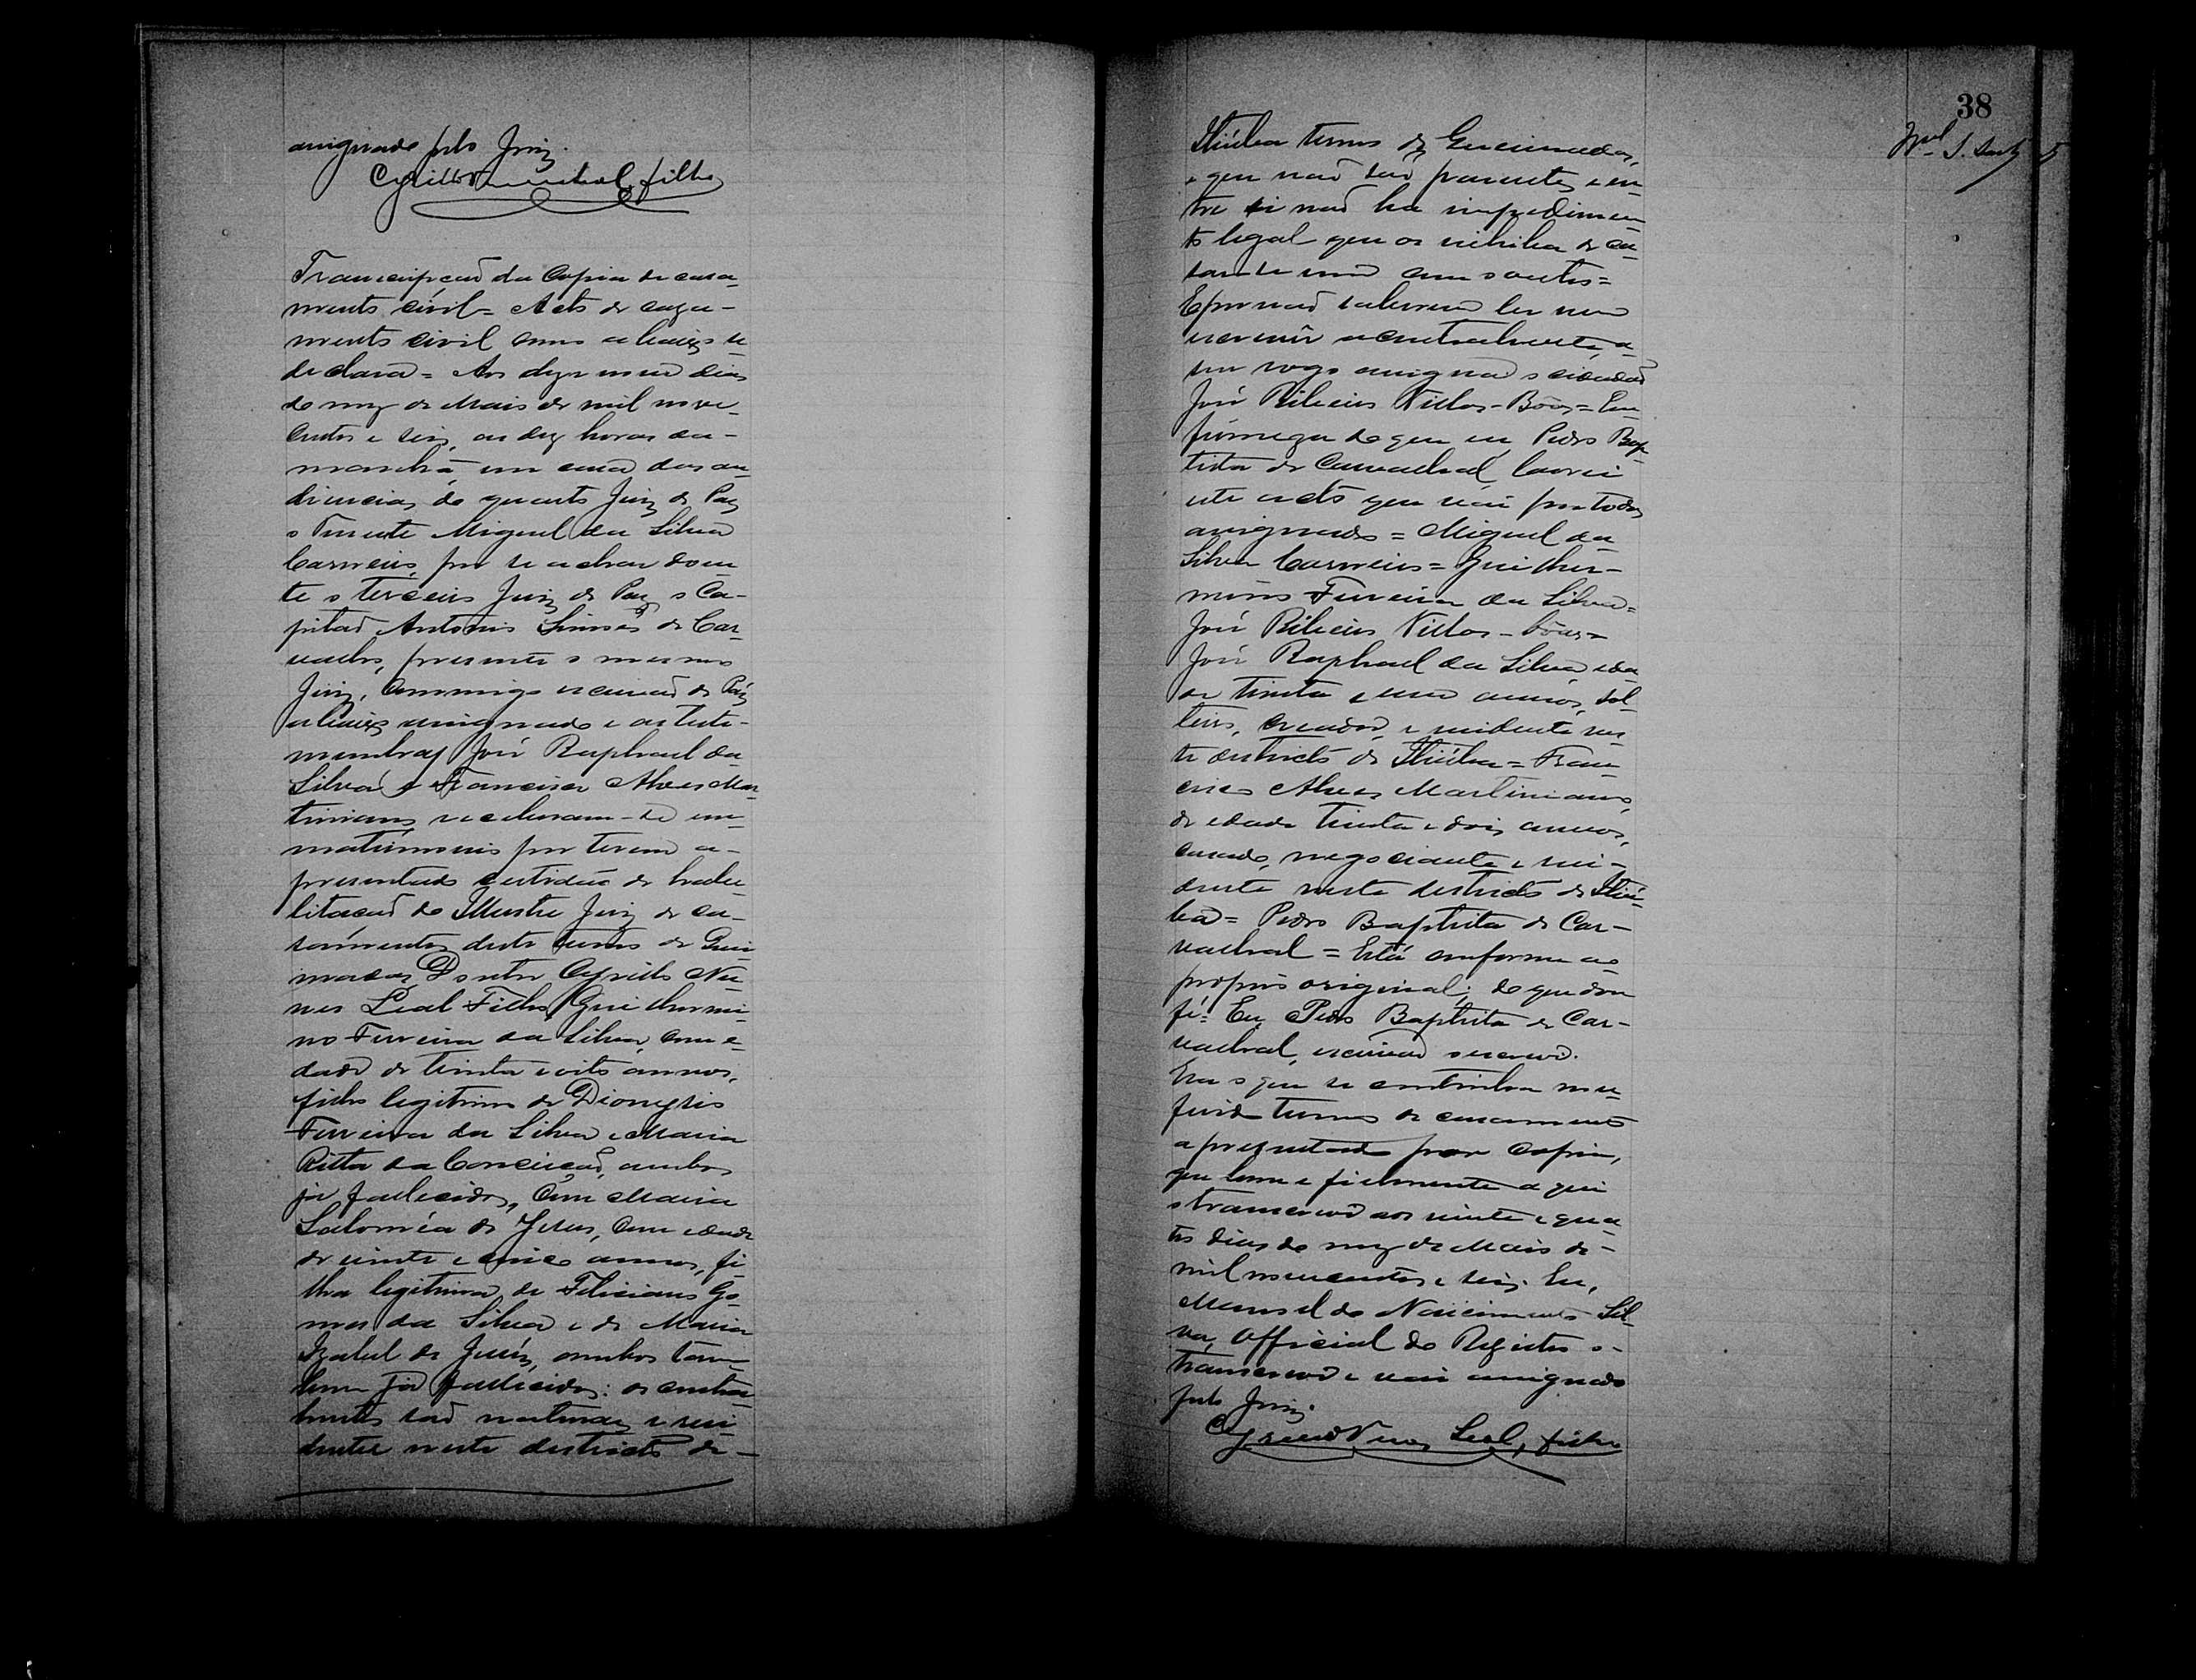 assignado pelo Juiz.
Cyrillo Nunes Leal, filho
Transcripção da Copia de casa-
mento civil = Acto de caza-
mento civil como abaixo se
declara = Aos dezenove dias
do mez de Maio de mil nove-
centos e seis, as dez horas da
manhã em casa das au-
diencias do quarto Juiz de Paz
o Tenente Miguel da Silva
Carneiro, por se achar doen-
te o terceiro Juiz de Paz o Ca-
pitão Antonio Simões de Car-
valho, presente o mesmo
Juiz, commigo escrivão de Paz
abaixo assignado e as teste-
munhas José Raphael da
Silva e Francisco Alves Mar-
tiniano, receberam-se em
matrimonio por terem a-
presentado certidão de habi-
litação do Illustre Juiz de ca-
samentos deste termo de Quei-
madas Doutor Cyrillo Nu-
nes Leal Filho, Guilhermi-
no Ferreira da Silva, com e-
dade de trinta e oito annos,
filho legitimo de Dionysio
Ferreira da Silva e Maria
Ritta da Conceição, ambos
já fallecidos, com Maria
Saloméa de Jesus, com edade
de vinte e cinco annos, fi-
lha legitima de Feliciano Go-
mes da Silva e de Maria
Izabel de Jesús, ambos tam-
bem já fallecidos: os contra-
hentes são naturaes e resi-
dentes neste districto de
38
Itiúba termo de Queimadas,
e que não são parentes e en-
tre si não ha impedimen-
to legal que os inhiba de ca-
sar-se um com o outro =
E por não saberem ler nem
escrever os contrahentes, a
seu rogo assigna o cidadão
José Ribeiro Villas-Bôas = Em
firmeza do que eu Pedro Bap-
tista de Carvalhal lavrei
este acto que vai por todos
assignado = Miguel da
Silva Carneiro = Guilher-
mino Ferreira da Silva =
José Ribeiro Villas-bôas =
José Raphael da Silva eda-
de trinta e um annos, sol-
teiro, creador, e residente nes-
te districto de Itiúba = Fran-
cisco Alves Martiniano,
de edade trinta e dois annos,
casado, negociante e resi-
dente neste districto de Itiú-
ba = Pedro Baptista de Car-
valhal = Está conforme ao
proprio original; do que dou
fé = Eu Pedro Baptista de Car-
valhal, escrivão o escrevi.
Era o que se continha no re-
ferido termo de casamento
apresentado por copia,
que bem e fielmente aqui
o transcrevo aos vinte e qua-
tro dias do mez de Maio de
mil novecentos e seis. Eu,
Manoel do Nascimento Sil-
va, Official do Registro o
transcrevo e vai assignado
pelo Juiz.
Cyrillo Nunes Leal, filho